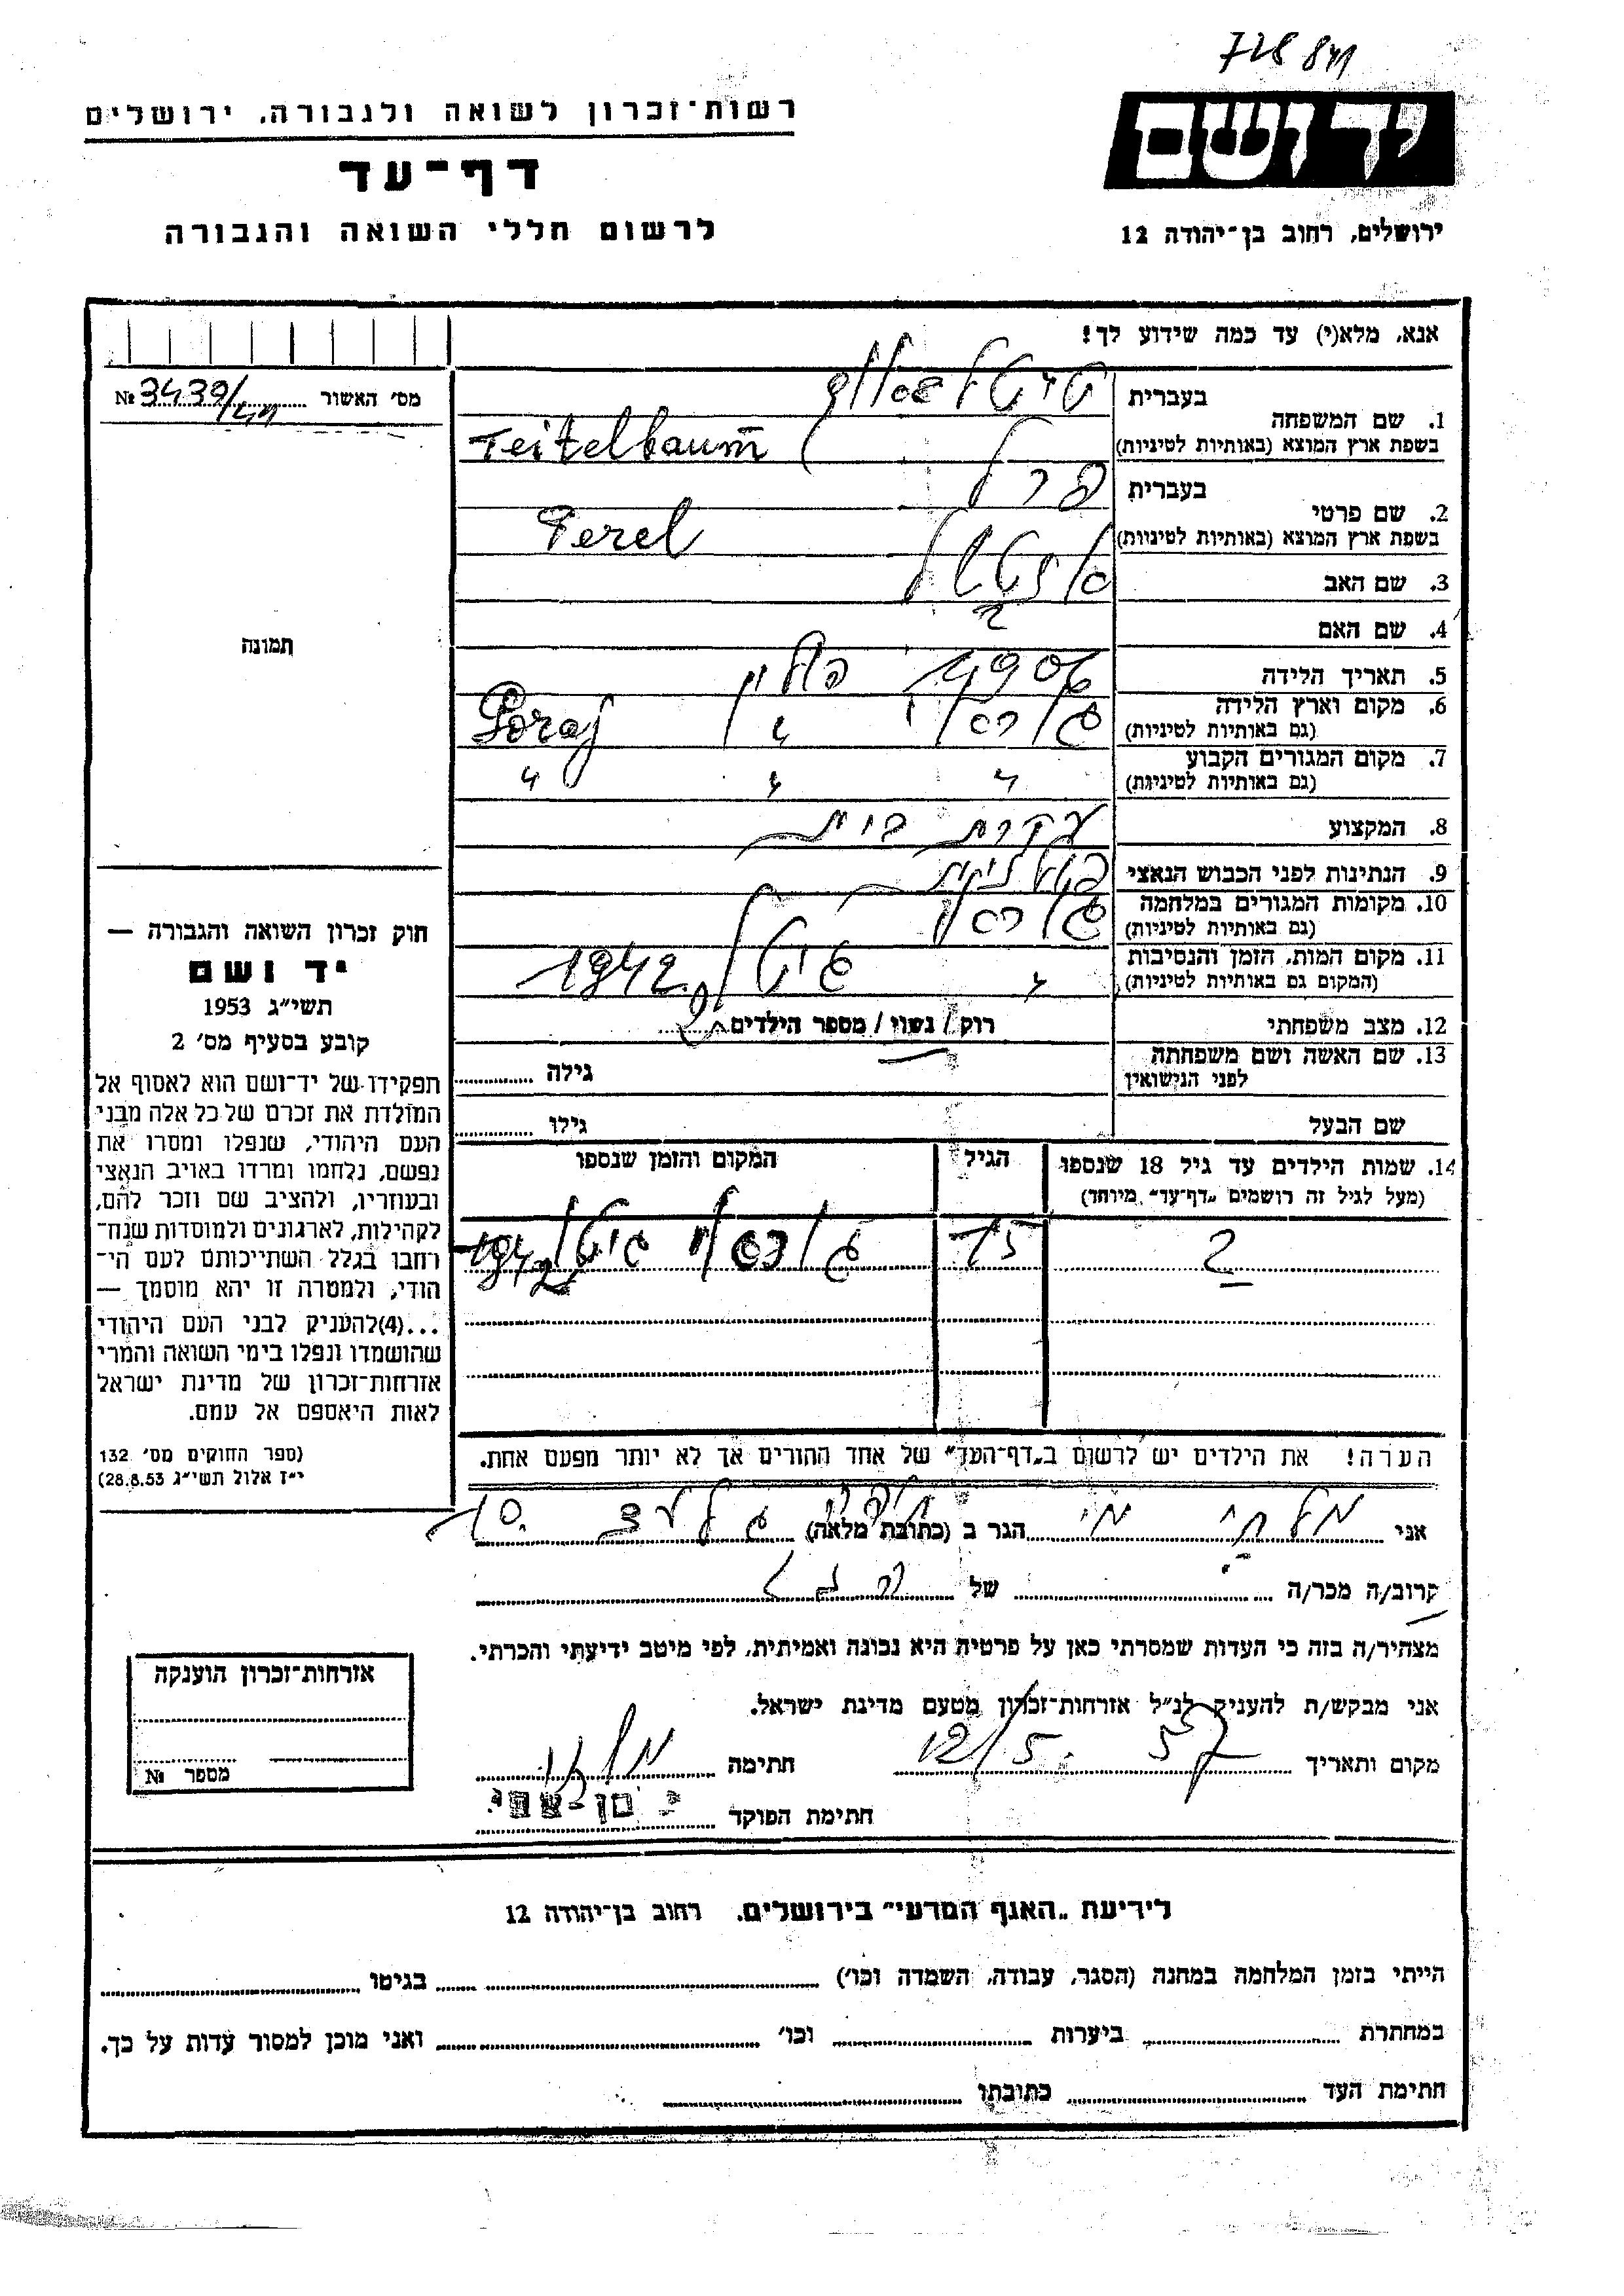 728 841
רשות־זכרון לשואה ולגבורה, ירושלים
יד ושם
דף־עד
לרשום חללי השואה והגבורה
ירושלים, רחוב בן־יהודה 12
אנא, מלא(י) עד כמה שידוע לך!
מס׳ האשור № 3439/
1. שם המשפחה
בעברית טייטלבאום
בשפת ארץ המוצא (באותיות לטיניות) Teitelbaum
2. שם פרטי
בעברית פרל
בשפת ארץ המוצא (באותיות לטיניות) Perel
3. שם האב
4. שם האם ?
תמונה
5. תאריך הלידה 1906
6. מקום וארץ הלידה
(גם באותיות לטיניות) פולין Poraj
7. מקום המגורים הקבוע
(גם באותיות לטיניות) " " "
8. המקצוע עקרת בית
9. הנתינות לפני הכבוש הנאצי פולנית
10. מקומות המגורים במלחמה
(גם באותיות לטיניות)
11. מקום המות, הזמן והנסיבות
(המקום גם באותיות לטיניות) " גיטו 1942
12. מצב משפחתי רוק / נשוי / מספר הילדים 2
13. שם האשה ושם משפחתה
לפני הנישואין גילה
שם הבעל גילו
14. שמות הילדים עד גיל 18 שנספו הגיל המקום והזמן שנספו
(מעל לגיל זה רושמים „דף־עד״ מיוחד)
2 15 גיטו 1942
הערה! את הילדים יש לרשום ב„דף־העד״ של אחד ההורים אך לא יותר מפעם אחת.
חוק זכרון השואה והגבורה —
יד ושם
תשי״ג 1953
קובע בסעיף מס׳ 2
תפקידו של יד־ושם הוא לאסוף אל
המולדת את זכרם של כל אלה מבני
העם היהודי, שנפלו ומסרו את
נפשם, נלחמו ומרדו באויב הנאצי
ובעוזריו, ולהציב שם וזכר להם,
לקהילות, לארגונים ולמוסדות שנח־
רבו בגלל השתייכותם לעם הי־
הודי, ולמטרה זו יהא מוסמך —
...(4)להעניק לבני העם היהודי
שהושמדו ונפלו בימי השואה והמרי
אזרחות־זכרון של מדינת ישראל
לאות היאספם אל עמם.
(ספר החוקים מס׳ 132
י״ז אלול תשי״ג 28.8.53)
אני הגר ב (כתובת מלאה) 10
קרוב/ה מכר/ה של
מצהיר/ה בזה כי העדות שמסרתי כאן על פרטיה היא נכונה ואמיתית, לפי מיטב ידיעתי והכרתי.
אני מבקש/ת להעניק לנ״ל אזרחות־זכרון מטעם מדינת ישראל.
מקום ותאריך 12/5. 57 חתימה
חתימת הפוקד
אזרחות־זכרון הוענקה
מספר №
לידיעת „האגף המדעי״ בירושלים. רחוב בן־יהודה 12
הייתי בזמן המלחמה במחנה (הסגר, עבודה, השמדה וכו׳) בגיטו
במחתרת ביערות וכו׳ ואני מוכן למסור עדות על כך.
חתימת העד כתובתו